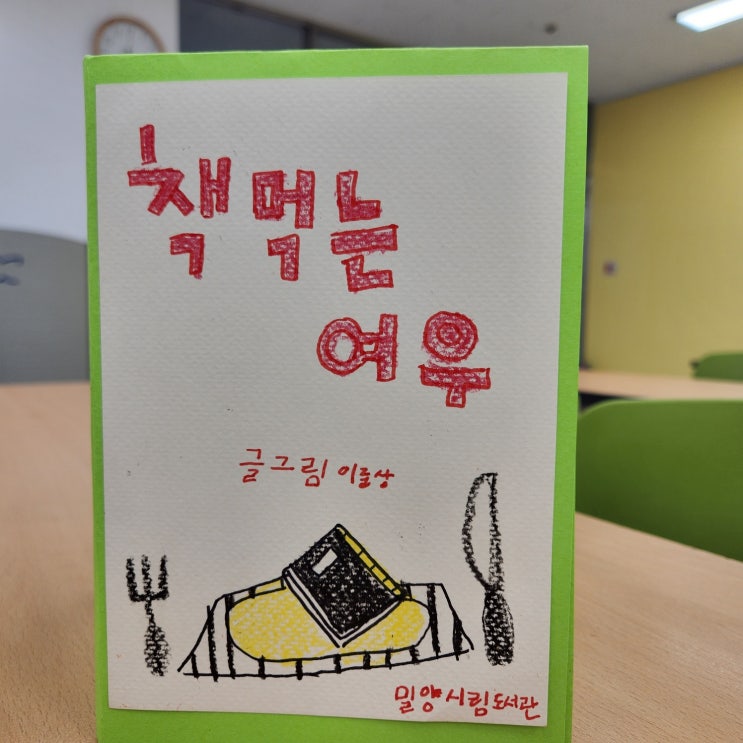 책먹는
여우
글그림 이를상
밀양시립도서관